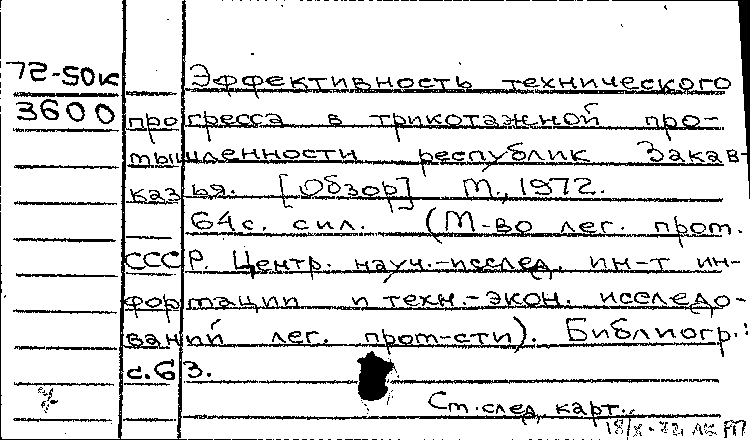 72-50к
3600
Эффективность технического
прогресса в трикотажной про-
мышленности республик Закав-
казья. [Обзор] М., 1972.
64 с. с ил. (М-во лег. пром.
СССР. Центр. науч.-исслед. ин-т ин-
формации и техн.-экон. исследо-
ваний лег. пром-сти). Библиогр.:
с. 63.
См. след. карт.